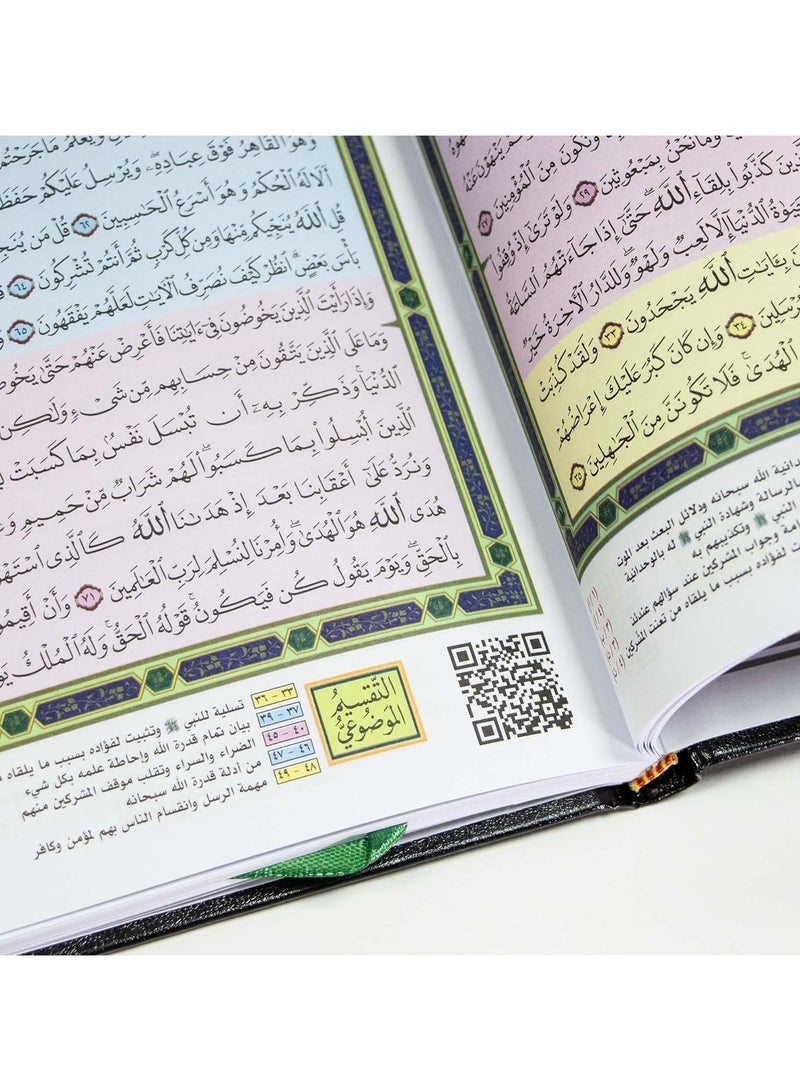 وَنَكُونَ مِنَ ٱلْمُؤْمِنِينَ
وَمَا نَحْنُ بِمَبْعُوثِينَ ٢٩ وَلَوْ تَرَىٰٓ إِذْ وُقِفُوا۟
كَذَّبُوا۟ بِلِقَآءِ ٱللَّهِ حَتَّىٰٓ إِذَا جَآءَتْهُمُ ٱلسَّاعَةُ
ٱلدُّنْيَآ إِلَّا لَعِبٌ وَلَهْوٌ وَلَلدَّارُ ٱلْءَاخِرَةُ خَيْرٌ
بِـَٔايَٰتِ ٱللَّهِ يَجْحَدُونَ ٣٣ وَلَقَدْ كُذِّبَتْ
٣٤ وَإِن كَانَ كَبُرَ عَلَيْكَ إِعْرَاضُهُمْ
ٱلْهُدَىٰ فَلَا تَكُونَنَّ مِنَ ٱلْجَٰهِلِينَ ٣٥
الله سبحانه ودلائل البعث بعد الموت
بالرسالة وشهادة النبي ﷺ له بالوحدانية
النبي ﷺ وتكذيبهم به
وجواب المشركين عند سؤالهم عندئذ
لفؤاده بسبب ما يلقاه من تعنت المشركين
وَيَعْلَمُ مَا جَرَحْتُم
وَهُوَ ٱلْقَاهِرُ فَوْقَ عِبَادِهِۦ وَيُرْسِلُ عَلَيْكُمْ حَفَظَةً
أَلَا لَهُ ٱلْحُكْمُ وَهُوَ أَسْرَعُ ٱلْحَٰسِبِينَ ٦٢ قُلْ مَن
قُلِ ٱللَّهُ يُنَجِّيكُم مِّنْهَا وَمِن كُلِّ كَرْبٍ ثُمَّ أَنتُمْ تُشْرِكُونَ ٦٤
بَأْسَ بَعْضٍ ٱنظُرْ كَيْفَ نُصَرِّفُ ٱلْءَايَٰتِ لَعَلَّهُمْ يَفْقَهُونَ ٦٥
وَإِذَا رَأَيْتَ ٱلَّذِينَ يَخُوضُونَ فِىٓ ءَايَٰتِنَا فَأَعْرِضْ عَنْهُمْ حَتَّىٰ
وَمَا عَلَى ٱلَّذِينَ يَتَّقُونَ مِنْ حِسَابِهِم مِّن شَىْءٍ وَلَٰكِن
ٱلدُّنْيَا وَذَكِّرْ بِهِۦٓ أَن تُبْسَلَ نَفْسٌۢ بِمَا كَسَبَتْ
ٱلَّذِينَ أُبْسِلُوا۟ بِمَا كَسَبُوا۟ لَهُمْ شَرَابٌ مِّنْ حَمِيمٍ
وَنُرَدُّ عَلَىٰٓ أَعْقَابِنَا بَعْدَ إِذْ هَدَىٰنَا ٱللَّهُ كَٱلَّذِى
هُدَى ٱللَّهِ هُوَ ٱلْهُدَىٰ وَأُمِرْنَا لِنُسْلِمَ لِرَبِّ ٱلْعَٰلَمِينَ ٧١ وَأَنْ أَقِيمُوا۟
بِٱلْحَقِّ وَيَوْمَ يَقُولُ كُن فَيَكُونُ قَوْلُهُ ٱلْحَقُّ وَلَهُ ٱلْمُلْكُ
التقسيم
الموضوعي
٣٣ - ٣٦ تسلية للنبي ﷺ وتثبيت لفؤاده بسبب ما يلقاه
٣٧ - ٣٩ بيان تمام قدرة الله وإحاطة علمه بكل شيء
٤٠ - ٤٥ الضراء والسراء وتقلب موقف المشركين منهم
٤٦ - ٤٧ من أدلة قدرة الله سبحانه
٤٨ - ٤٩ مهمة الرسل وانقسام الناس بهم لمؤمن وكافر